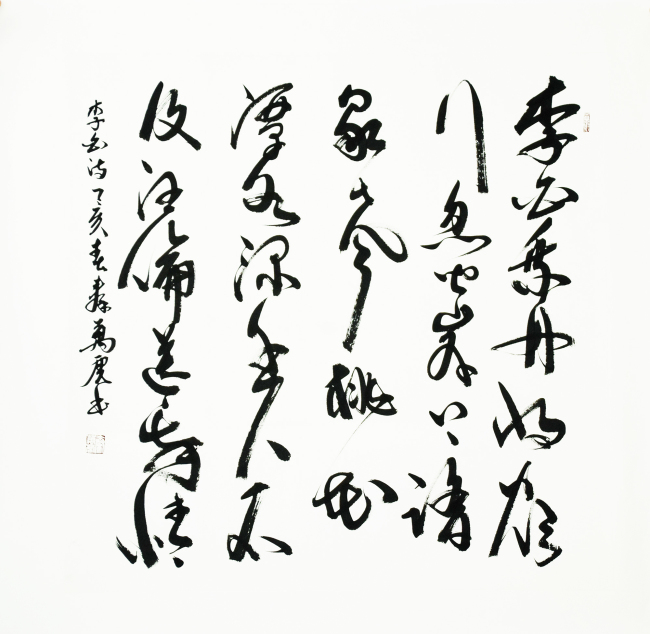 李白乘舟將欲
行忽聞岸上踏
歌聲桃花
潭水深千尺不
及汪倫送我情
李白詩丁亥春萬虎書